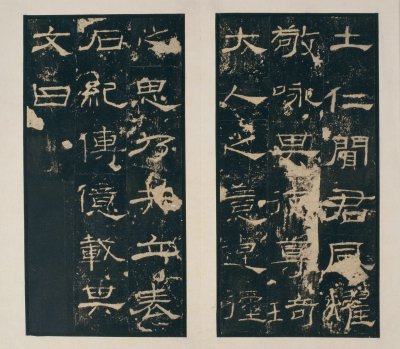 士仁聞君風耀
敬咏其德尊琦
大人之意逴彌
之思乃共立表
石紀傳億載其
文曰